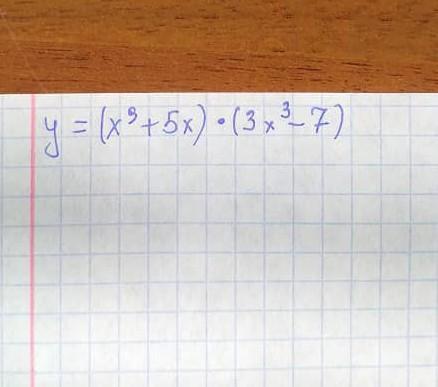 y = (x⁹+5x)·(3x³-7)